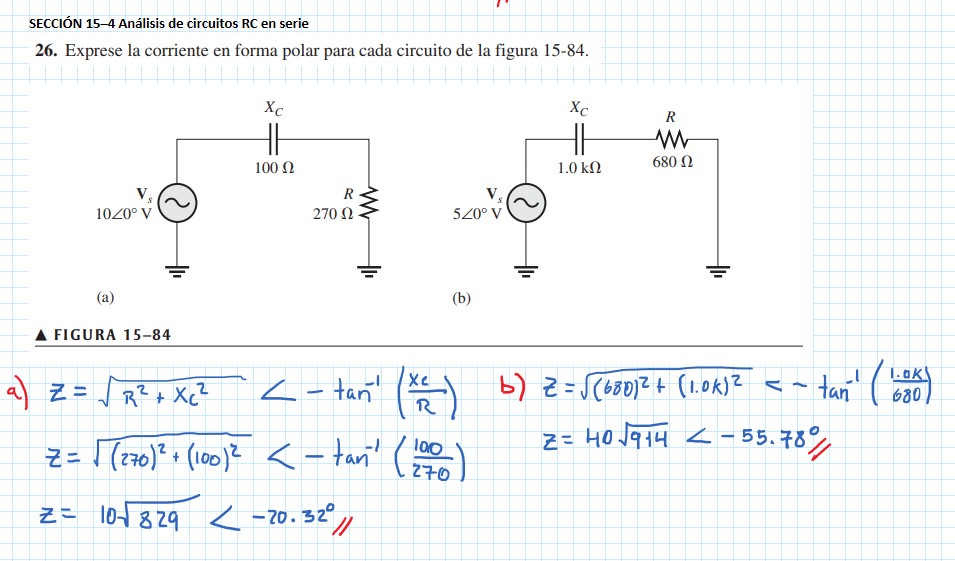 SECCIÓN 15–4 Análisis de circuitos RC en serie
26. Exprese la corriente en forma polar para cada circuito de la figura 15-84.
X_C
100 Ω
V_s
10∠0° V
R
270 Ω
(a)
X_C
1.0 kΩ
R
680 Ω
V_s
5∠0° V
(b)
▲ FIGURA 15–84
a) Z = √(R² + Xc²) ∠ - tan⁻¹ (Xc/R)
Z = √((270)² + (100)²) ∠ - tan⁻¹ (100/270)
Z = 10√829 ∠ -20.32° //
b) Z = √((680)² + (1.0K)²) ∠ - tan⁻¹ (1.0K/680)
Z = 40√914 ∠ -55.78° //